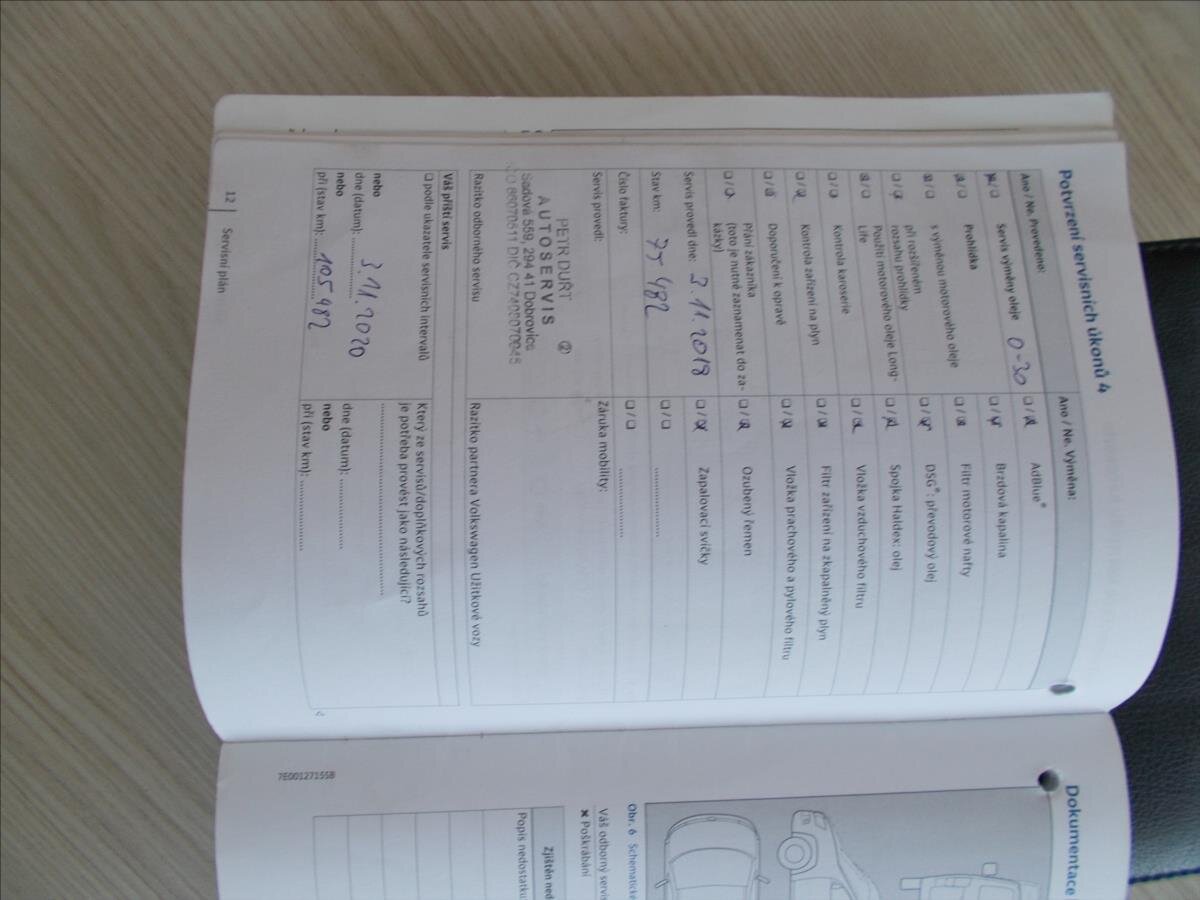 Potvrzení servisních úkonů 4
Ano / Ne. Provedeno:
Servis výměny oleje 0-30
Prohlídka
s výměnou motorového oleje
při rozšířeném
rozsahu prohlídky
Použití motorového oleje Long-
Life
Kontrola karoserie
Kontrola zařízení na plyn
Doporučení k opravě
Přání zákazníka
(toto je nutné zaznamenat do za-
kázky)
Servis provedl dne: 3.11.2018
Stav km: 75 482
Číslo faktury:
Servis provedl:
PETR DUŘT
AUTOSERVIS 2
Sadová 559, 294 41 Dobrovice
Razítko odborného servisu
Ano / Ne. Výměna:
AdBlue®
Brzdová kapalina
Filtr motorové nafty
DSG®: převodový olej
Spojka Haldex: olej
Vložka vzduchového filtru
Filtr zařízení na zkapalněný plyn
Vložka prachového a pylového filtru
Ozubený řemen
Zapalovací svíčky
Záruka mobility:
Razítko partnera Volkswagen Užitkové vozy
Váš příští servis
podle ukazatele servisních intervalů
nebo
dne (datum): 3.11.2020
nebo
při (stav km): 105 982
Který ze servisů/doplňkových rozsahů
je potřeba provést jako následující?
dne (datum):
nebo
při (stav km):
12 Servisní plán
Dokumentace
Obr. 6 Schematické
Váš odborný servis
× Poškrábání
Zjištěn ned
Popis nedostatku
7E0012715SB